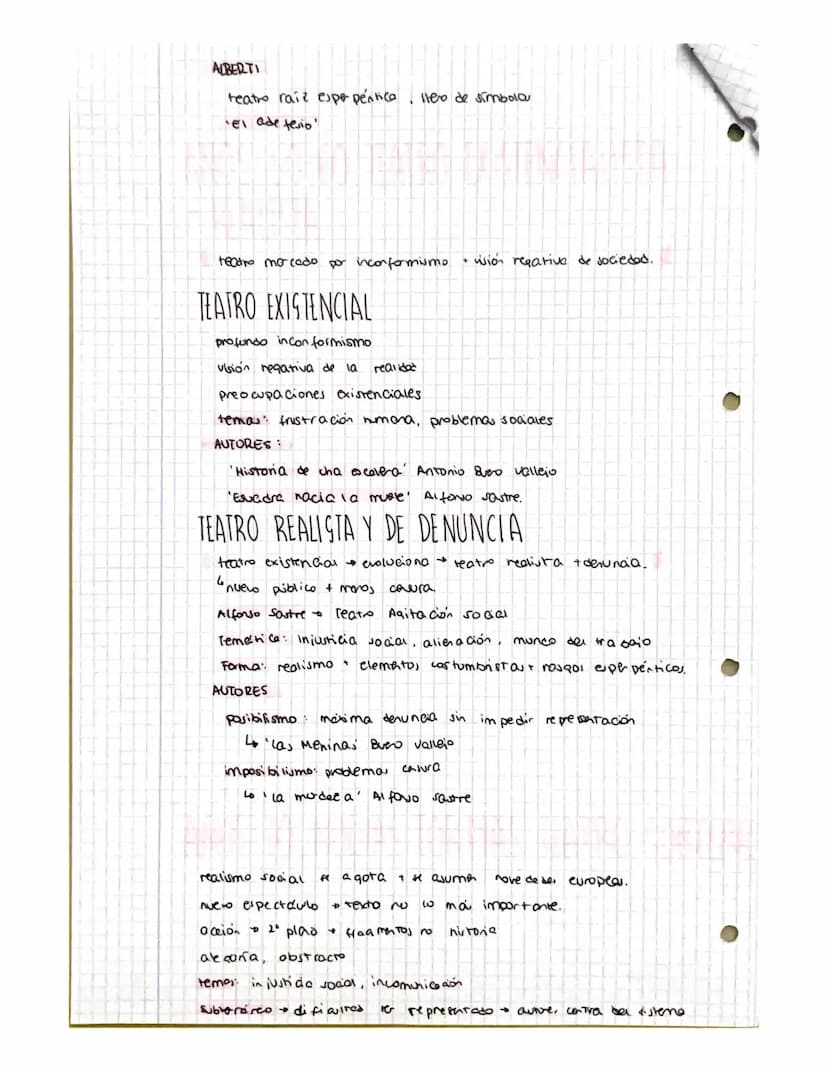 ALBERTI
teatro raíz esperpéntica, lleno de símbolos
'El adefesio'
teatro marcado por inconformismo + visión negativa de sociedad.
TEATRO EXISTENCIAL
profundo inconformismo
visión negativa de la realidad
preocupaciones existenciales
temas: frustración humana, problemas sociales
AUTORES:
'Historia de una escalera' Antonio Buero Vallejo
'Escuadra hacia la muerte' Alfonso Sastre.
TEATRO REALISTA Y DE DENUNCIA
teatro existencial → evoluciona → teatro realista + denuncia.
↳ nuevo público + menos censura
Alfonso Sastre → Teatro Agitación social
Temática: injusticia social, alienación, mundo del trabajo
Forma: realismo + elementos costumbristas + rasgos esperpénticos.
AUTORES
posibilismo: máxima denuncia sin impedir representación
↳ 'Las Meninas' Buero Vallejo
imposibilismo: problemas censura
↳ 'La mordaza' Alfonso Sastre
realismo social se agota + se asumen novedades europeas.
nuevo espectáculo → texto no lo más importante.
acción → 2º plano → fragmentos no historia
alegoría, abstracto
temas: injusticia social, incomunicación
Subterráneo → dificultades ser representado → autores contra del sistema